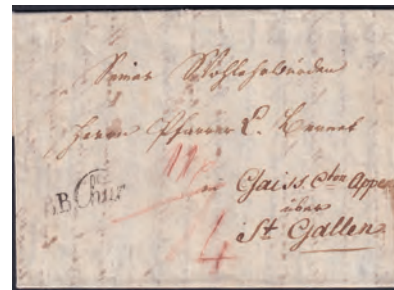 Seiner Wohlehrwürden
Herrn Pfarrer L.
B.B. Chur
11
in Gaiss. Cton Appen
über
St Gallen
4